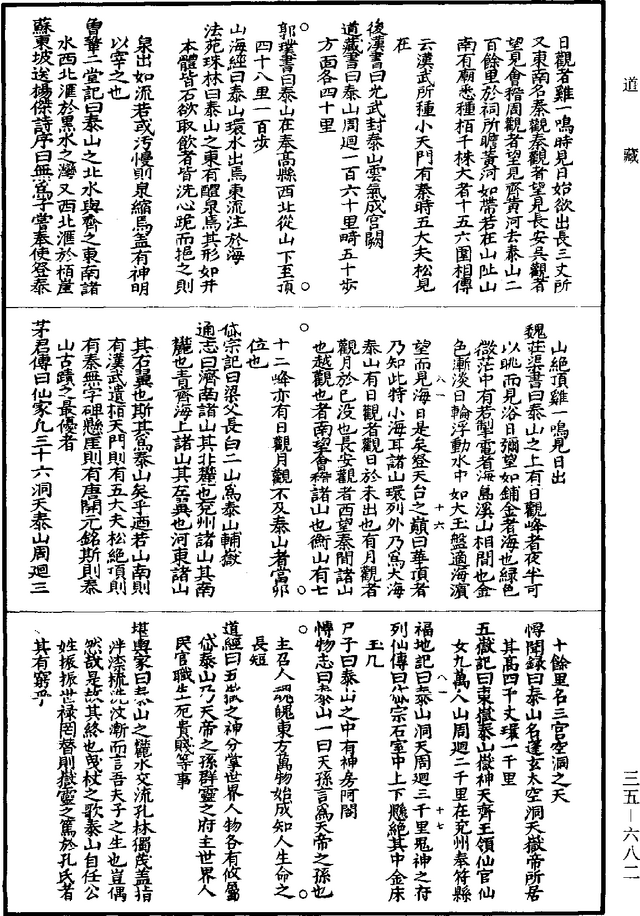 道藏
日觀者雞一鳴時見日始欲出長三丈所
又東南名秦觀秦觀者望見長安吳觀者
望見會稽周觀者望見齊黃河去泰山二
百餘里於祠所瞻黃河如帶若在山阯山
南有廟悉種栢千株大者十五六圍相傳
云漢武所種小天門有秦時五大夫松見
在
後漢書曰光武封泰山雲氣成宮闕
道藏書曰泰山周迴一百六十里畸五十步
方面各四十里
郭璞書曰泰山在奉高縣西北從山下至頂
四十八里一百步
山海經曰泰山環水出焉東流注於海
法苑珠林曰泰山之東有醴泉焉其形如井
本體皆石欲取飲者皆洗心跪而挹之則
泉出如流若或污慢則泉縮焉蓋有神明
以宰之也
魯華二堂記曰泰山之北水與齊之東南諸
水西北滙於黑水之灣又西北滙於栢崖
蘇東坡送楊傑詩序曰無爲子嘗奉使登泰
山絶頂雞一鳴見日出
魏莊渠書曰泰山之上有日觀峰者夜半可
以眺而見浴日彌望如鋪金者海也綠色
微茫中有若掣電者海島溪山相間也金
色漸淡日輪浮動水中如大玉盤適海濵
望而見海日是矣登天台之巔曰華頂者
乃知此特小海耳諸山環列外乃爲大海
泰山有日觀者觀日於未出也有月觀者
觀月於已没也長安觀者西望秦間諸山
也越觀也者南望會稽諸山也衡山有七
十二峰亦有日觀月觀不及泰山者當卯
位也
岱宗記曰梁父長白二山爲泰山輔嶽
通志曰濟南諸山其北麓也兖州諸山其南
麓也青齊海上諸山其左翼也河東諸山
其右翼也斯其爲泰山矣乎迺若山南則
有漢武遺栢天門則有五大夫松絶頂則
有秦無字碑懸崖則有唐開元銘斯則泰
山古蹟之最優者
茅君傳曰仙家凡三十六洞天泰山周迴三
十餘里名三宮空洞之天
博聞録曰泰山名蓬玄太空洞天嶽帝所居
其高四千丈環一千里
五嶽記曰東嶽泰山嶽神天齊王領仙官仙
女九萬人山周迴二千里在兖州奉符縣
福地記曰泰山洞天周迴三千里鬼神之府
列仙傳曰岱宗石室中上下懸絶其中金床
玉几
尸子曰泰山之中有神房阿閣
博物志曰泰山一曰天孫言爲天帝之孫也
主召人魂魄東方萬物始成知人生命之
長短
道經曰五嶽之神分掌世界人物各有攸屬
岱泰山乃天帝之孫群靈之府主世界人
民官職生死貴賤等事
堪輿家曰泰山之麓水交流孔林獨茂蓋指
泮漆梳洗汶漸而言吾夫子之生也豈偶
然歟是故其終也曳杖之歌泰山自任公
姓振振世禄罔替則嶽靈之篤於孔氏者
其有窮乎
八一 十六
八一 十七
三五—六八二